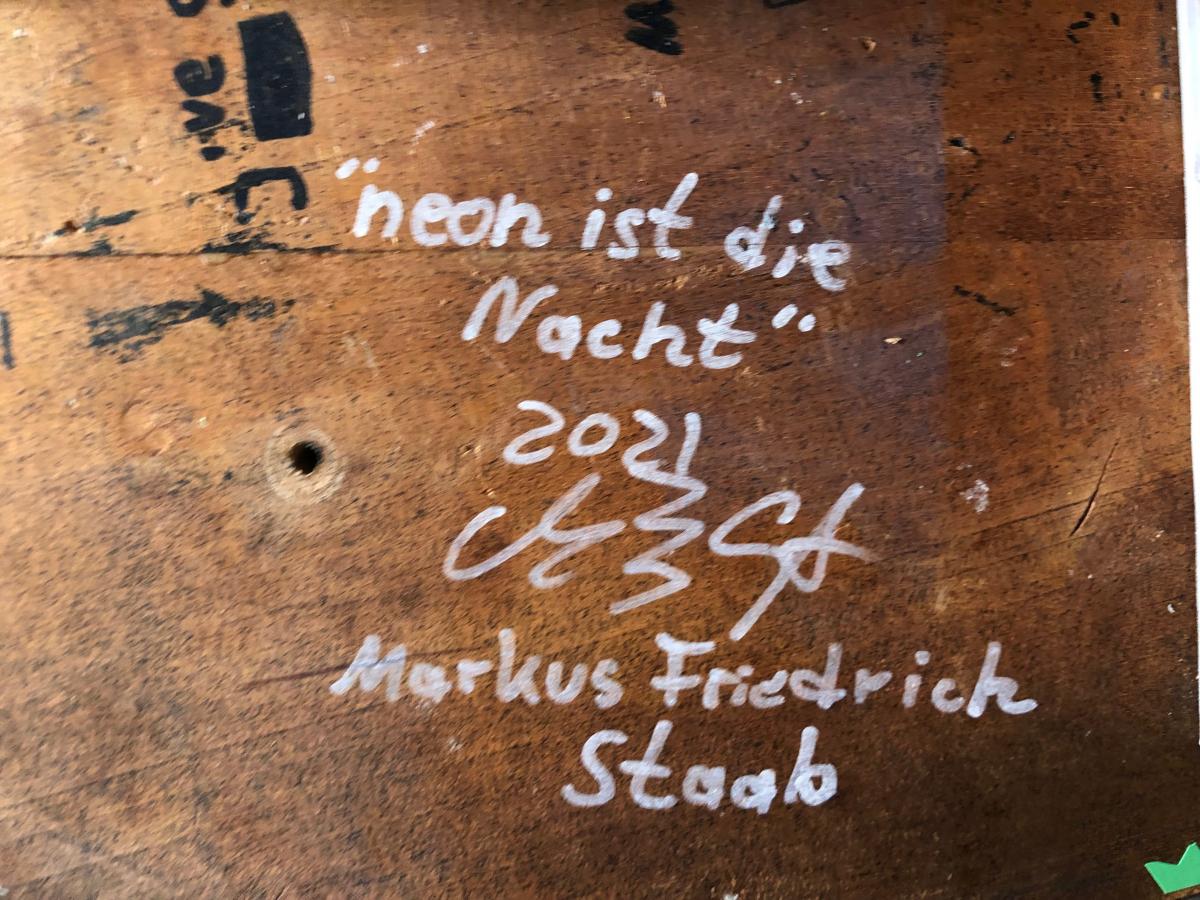 "neon ist die
Nacht"
2021
Markus Friedrich
Staab